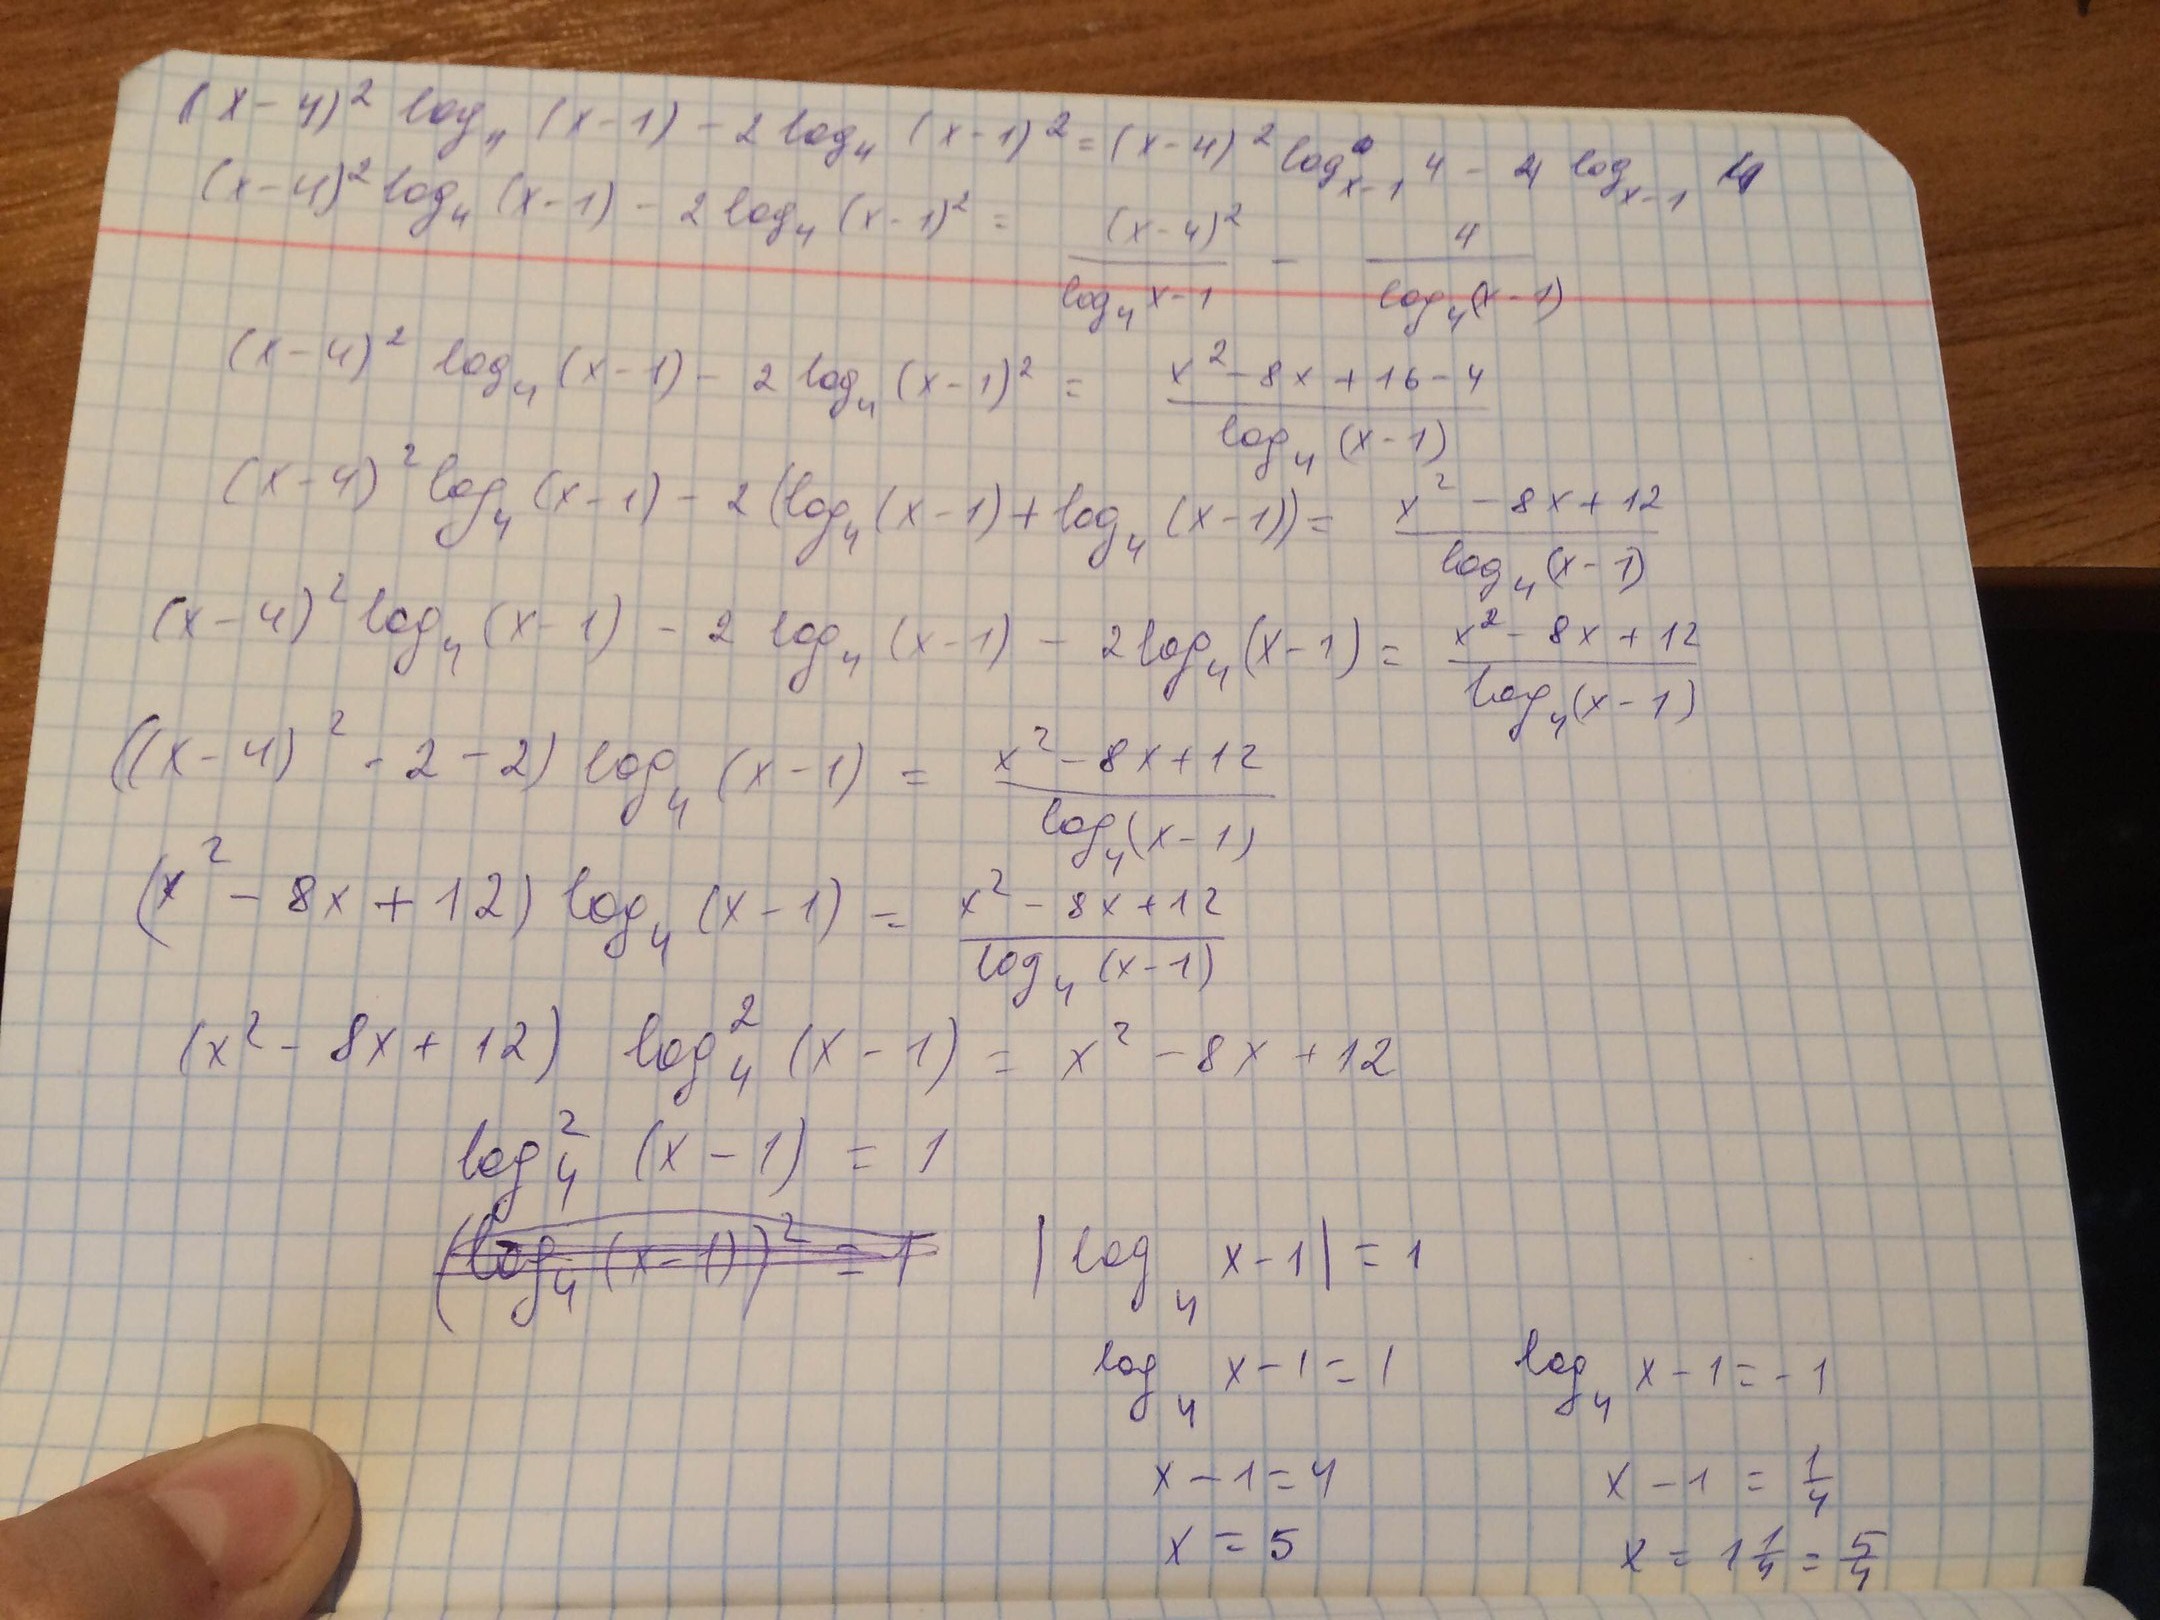 (x-4)² log₄ (x-1) - 2 log₄ (x-1)² = (x-4)² log ₓ₋₁ 4 - 4 log ₓ₋₁ 4
(x-4)² log₄ (x-1) - 2 log₄ (x-1)² = (x-4)² / log₄ x-1 - 4 / log₄(x-1)
(x-4)² log₄ (x-1) - 2 log₄ (x-1)² = x² - 8x + 16 - 4 / log₄ (x-1)
(x-4)² log₄ (x-1) - 2 (log₄ (x-1) + log₄ (x-1)) = x² - 8x + 12 / log₄ (x-1)
(x-4)² log₄ (x-1) - 2 log₄ (x-1) - 2 log₄ (x-1) = x² - 8x + 12 / log₄ (x-1)
((x-4)² - 2 - 2) log₄ (x-1) = x² - 8x + 12 / log₄ (x-1)
(x² - 8x + 12) log₄ (x-1) = x² - 8x + 12 / log₄ (x-1)
(x² - 8x + 12) log₄² (x-1) = x² - 8x + 12
log₄² (x-1) = 1
(log₄ (x-1))² = 1 | log₄ x-1 | = 1
log₄ x-1 = 1 log₄ x-1 = -1
x-1 = 4 x-1 = 1/4
x = 5 x = 1 1/4 = 5/4